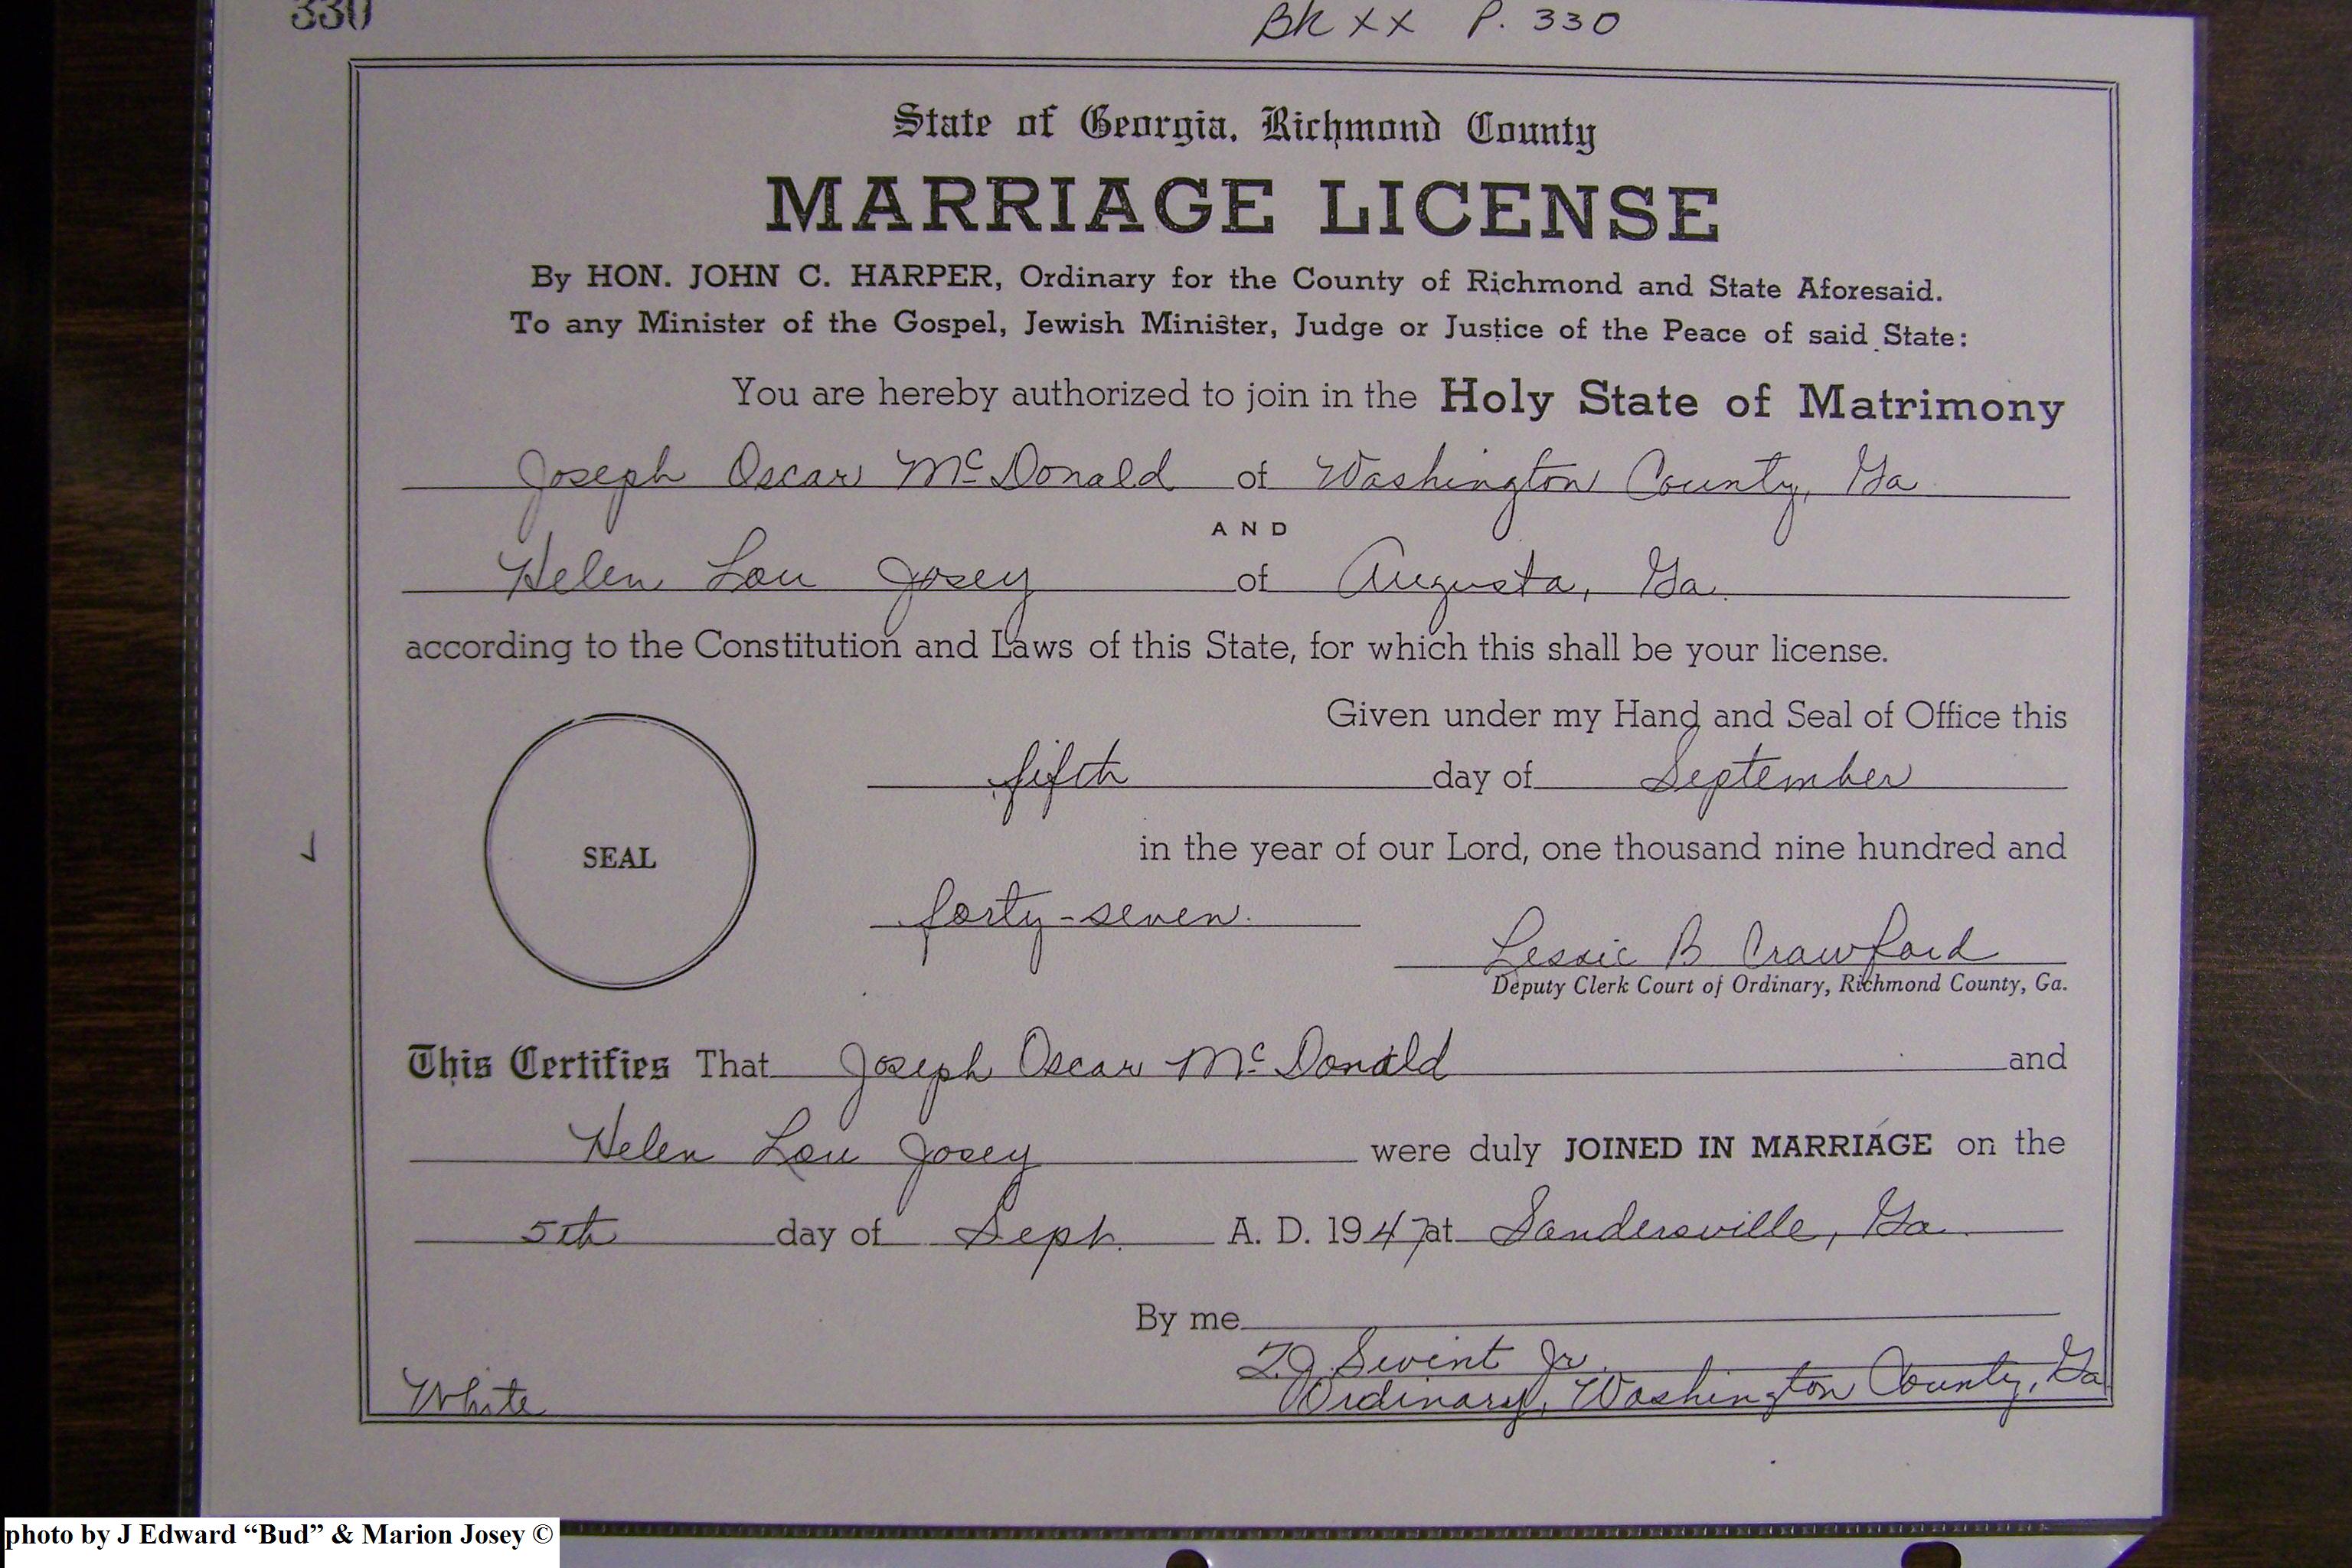 330
Bk XX P. 330
State of Georgia, Richmond County
MARRIAGE LICENSE
By HON. JOHN C. HARPER, Ordinary for the County of Richmond and State Aforesaid.
To any Minister of the Gospel, Jewish Minister, Judge or Justice of the Peace of said State:
You are hereby authorized to join in the Holy State of Matrimony
Joseph Oscar McDonald of Washington County, Ga
AND
Helen Lou Josey of Augusta, Ga.
according to the Constitution and Laws of this State, for which this shall be your license.
Given under my Hand and Seal of Office this
fifth day of September
in the year of our Lord, one thousand nine hundred and
SEAL
forty-seven.
Lessie B Crawford
Deputy Clerk Court of Ordinary, Richmond County, Ga.
This Certifies That Joseph Oscar McDonald and
Helen Lou Josey were duly JOINED IN MARRIAGE on the
5th day of Sept. A. D. 1947 at Sandersville, Ga.
By me
Swint Jr.
Ordinary, Washington County, Ga
White
photo by J Edward “Bud” & Marion Josey ©